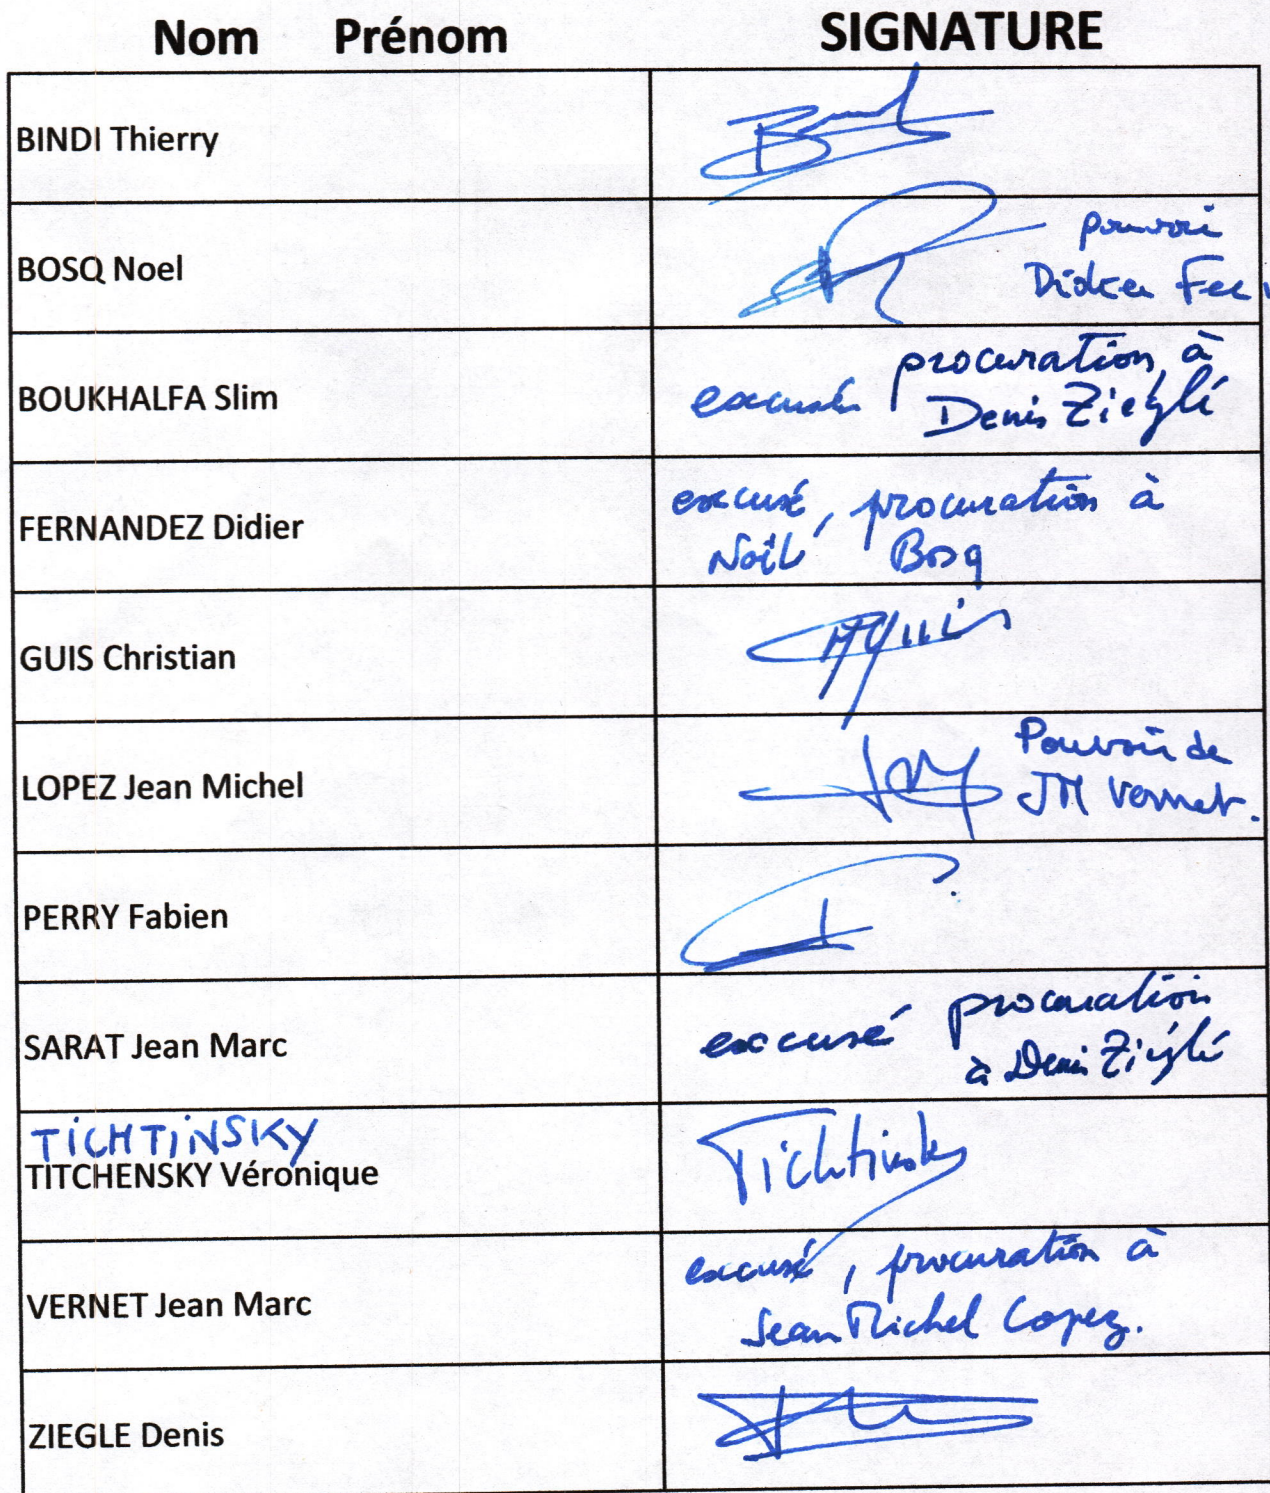 Nom Prénom SIGNATURE
BINDI Thierry
BOSQ Noel
pouvoir
Didier Fer
BOUKHALFA Slim
excusé procuration à
Denis Zieglé
FERNANDEZ Didier
excusé, procuration à
Noël Bosq
GUIS Christian
LOPEZ Jean Michel
Pouvoir de
JM Vernet.
PERRY Fabien
SARAT Jean Marc
excusé procuration
à Denis Zieglé
TICHTINSKY
TITCHENSKY Véronique
Tichtinsky
VERNET Jean Marc
excusé, procuration à
Jean Michel Lopez.
ZIEGLE Denis